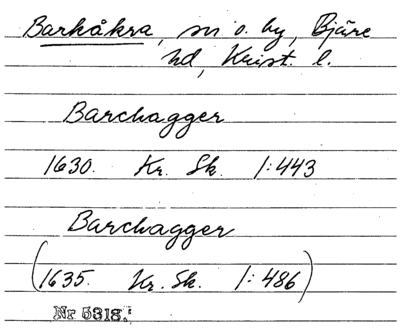 Barkåkra, sn o. by, Bjäre
hd, Krist. l.
Barchagger
1630. Kr. Sk. 1:443
Barchagger
(1635. Kr. Sk. 1:486)
Nr 5318.